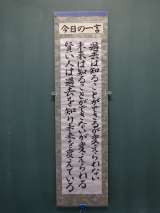 今日の一言
過去は知ることができるが変えられない
未来は知ることができないが変えられる
賢い人は過去を知り未来を変えている